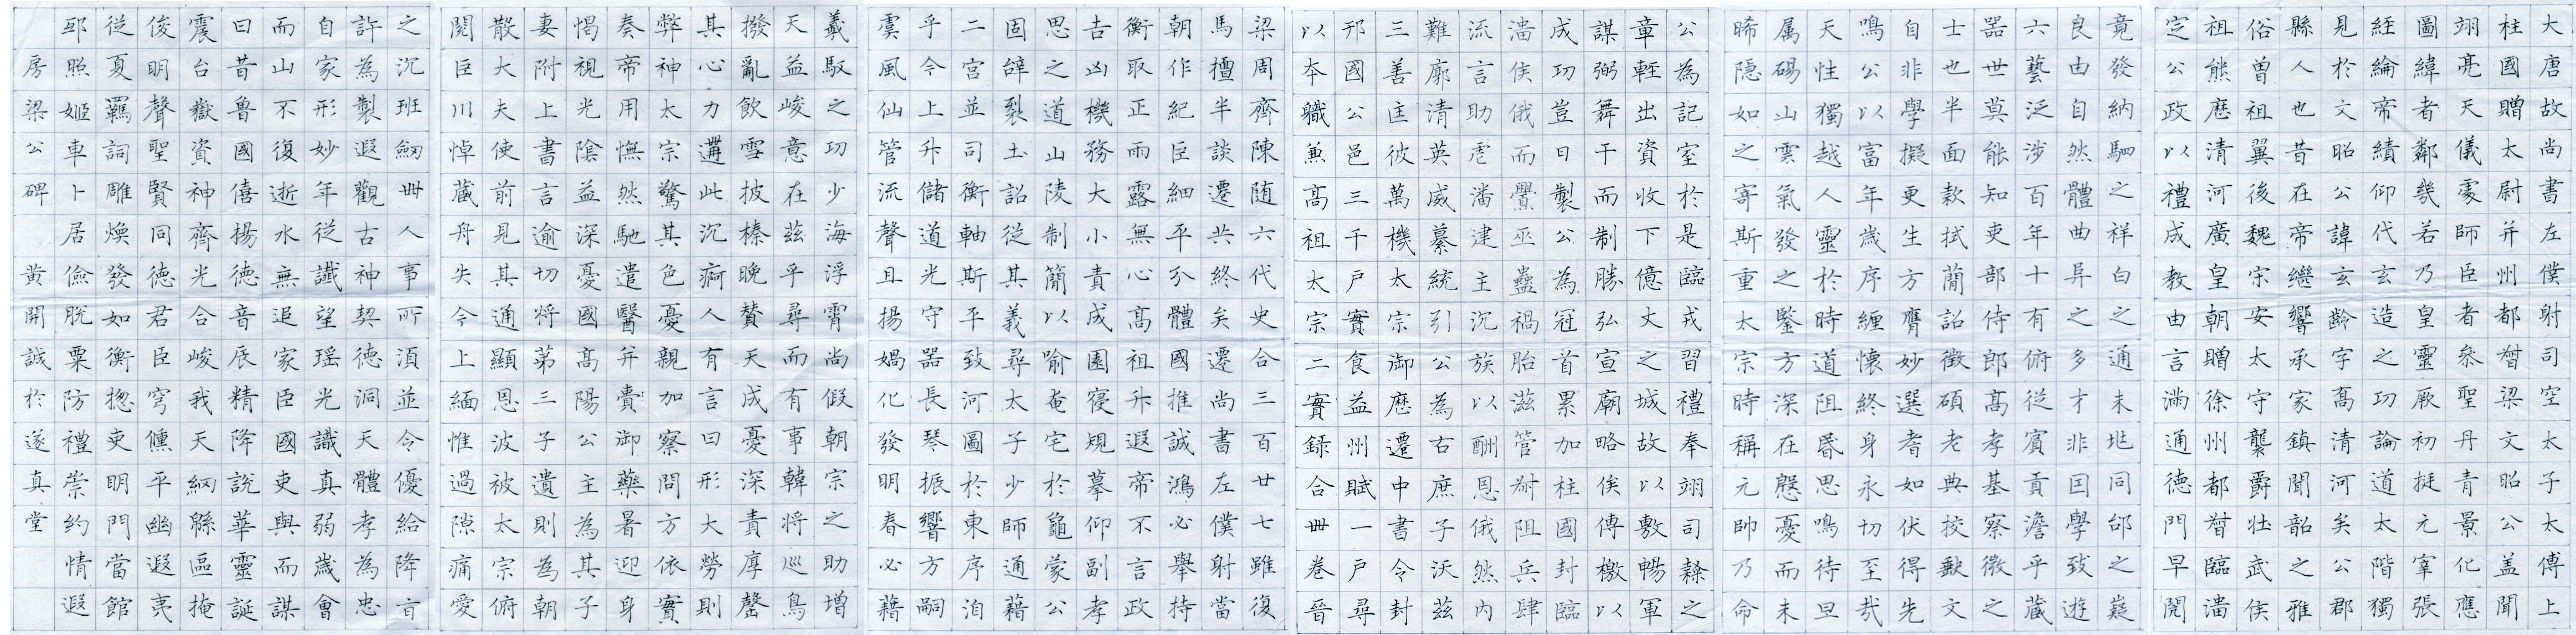 大唐故尚書左僕射司空太子太傅上
柱國贈太尉并州都督梁文昭公盖聞
翊亮天儀處師臣者叅聖丹青景化應
圖緯者鄰幾若乃皇靈厥初挺元宰張
経綸帝績仰代玄造之功論道太階獨
見於文昭公諱玄齡字髙清河矣公郡
縣人也昔在帝继響承家鎮聞韶之雅
俗曽祖翼後魏宋安太守襲爵壮武侯
祖熊歷清河廣皇朝贈徐州都督臨淄
定公政以禮成教由言满通德門早閲
竟發納駟之祥白之通未地同邰之嶷
良由自然體曲异之多才非囙學致遊
六藝泛涉百年十有俯從賓貢澹乎蔵
器世莫能知吏部侍郎髙孝基察徴之
士也半面款拭蕳詔徵碩老典挍猷文
自非學擬更生方膺妙選者如伏得先
鳴公以富年歳序纏懐終身永切至哉
天性獨越人靈於時道阻昏思鳴待旦
属碭山雲氣發之鑒方深在慇憂而未
晞隠如之寄斯重太宗時稱元帥乃命
公為記室於是臨戎習禮奉翊司隸之
章輕出資收下億丈之城故以敷暢軍
謀弼舞干而制勝弘宣廟略俟傅檄以
成功豈日製公為冠首累加柱國封臨
淄侯俄而釁巫蠱禍胎滋管耐阻兵肆
流言助虐潘建主沉族以酬恩俄然内
難廓清英威纂統引公為右庶子沃茲
三善匡彼萬機太宗御歷遷中書令封
邗國公邑三千戸實食益州賦一戸尋
以夲職兼髙祖太宗二實録合卌卷晉
梁周齊陳随六代史合三百廿七雖復
馬擅半談遷共終矣遷尚書左僕射當
朝作紀臣細平尔體國推誠鴻必舉持
衡取正雨露無心髙祖升遐帝不言政
吉凶機務大小責成園寝規摹仰副孝
思之道山陵制簡以喻奄宅於龜蒙公
固辥裂土詔従其義尋太子少師通藉
二宮並司衡軸斯平致河圖於東序洎
乎令上升儲道光守器長琴振響方嗣
虞風仙管流聲且揚媧化發明春必藉
羲馭之功少海浮霄尚假朝宗之助増
天益峻意在茲乎尋而有事韓将巡鳥
撥亂飲雪披榛晚賛天成憂深責厚罄
其心力遘此沉痾人有言曰形大勞則
弊神太宗驚其色憂親加察問方依實
奏帝用憮然馳遣醫并賷御藥暑迎身
愒視光陰益深憂國髙陽公主為其子
妻附上書言逾切将苐三子遺則為朝
散大夫使前見其通顯恩波被太宗俯
閲巨川悼蔵舟失今上緬惟過隙痛愛
之沉班劔卌人事所湏並令優給降
許為製遐觀古神契徳洞天體孝為忠
自家形妙年従讖望瑶光識真弱歳會
而山不復逝水無追家臣國吏與而謀
曰昔魯國僖揚徳音辰精降說華靈誕
震台嶽資神齊光合峻我天綱縣區掩
俊明聲聖賢同徳君臣穹儦平幽遐夷
従夏羈詞雕煥發如衡揔吏明門當館
邳照姬車卜居儉脱粟防禮崇約情遐
房梁公碑 黄開誠於遂真堂